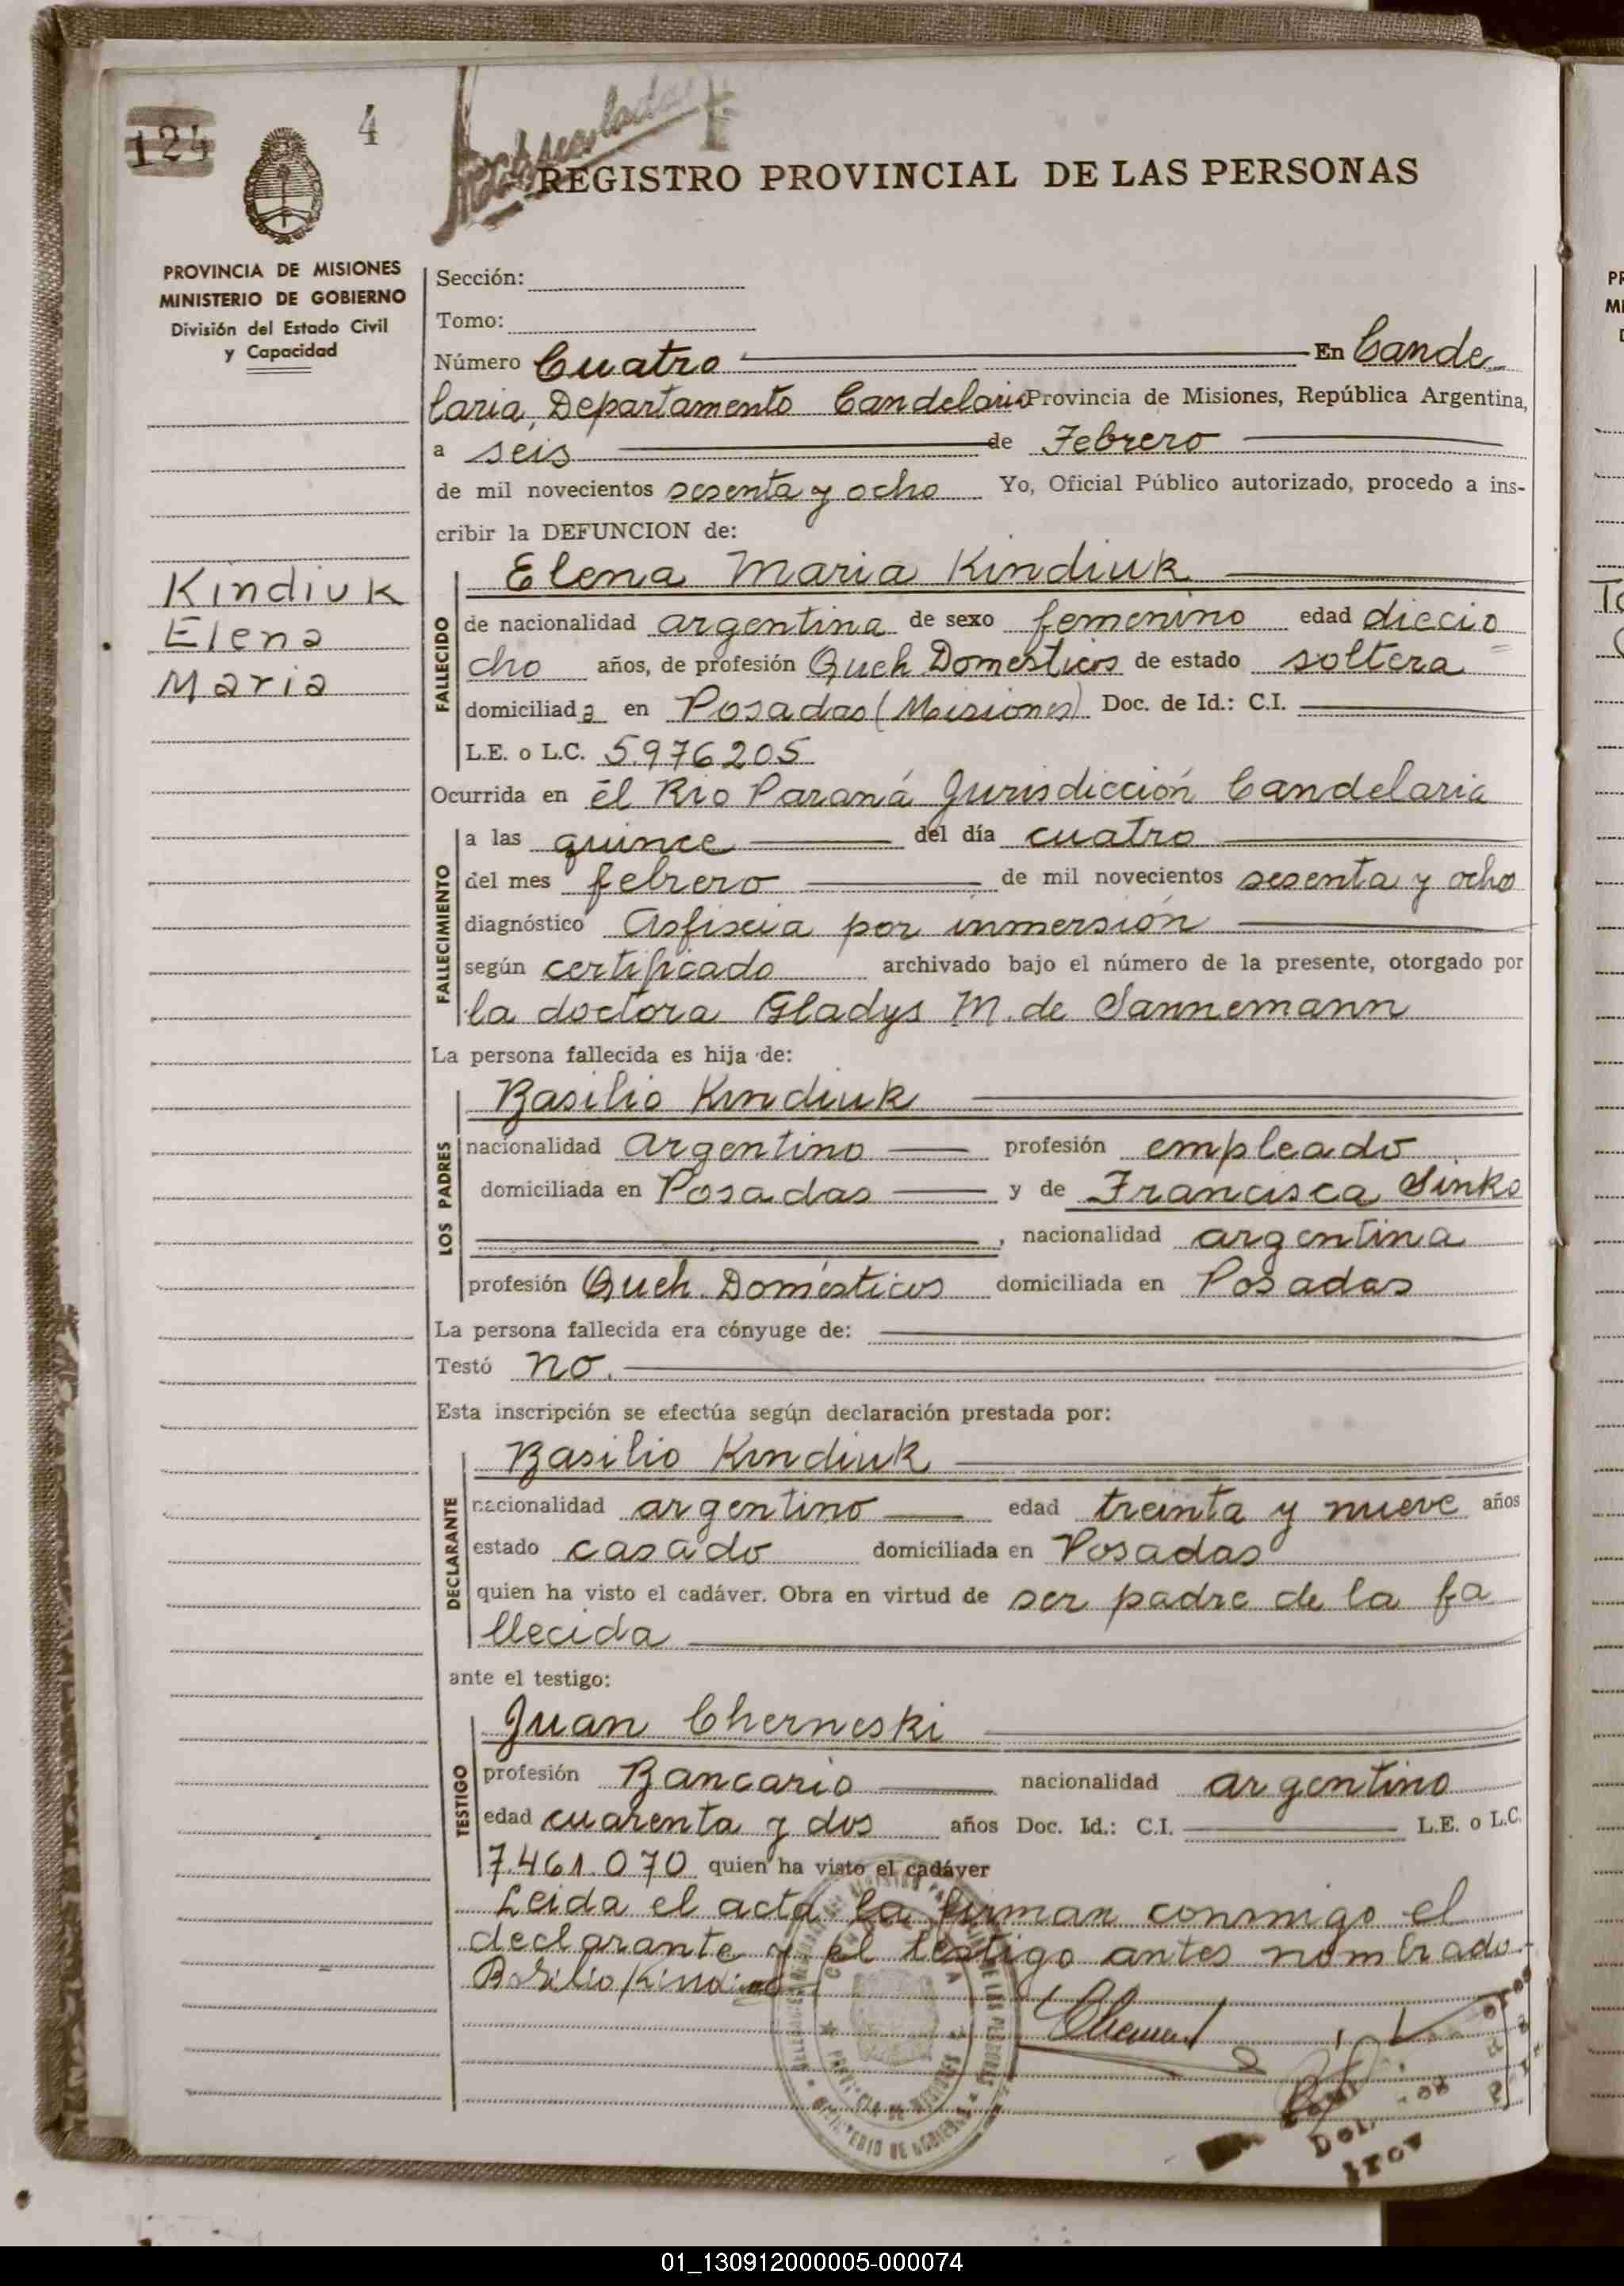 124
4
REGISTRO PROVINCIAL DE LAS PERSONAS
PROVINCIA DE MISIONES
MINISTERIO DE GOBIERNO
División del Estado Civil
y Capacidad
Kindiuk
Elena
Maria
Sección:
Tomo:
Número Cuatro En Cande
laria, Departamento Candelaria Provincia de Misiones, República Argentina,
a seis de Febrero
de mil novecientos sesenta y ocho Yo, Oficial Público autorizado, procedo a ins-
cribir la DEFUNCION de:
FALLECIDO
Elena Maria Kindiuk
de nacionalidad argentina de sexo femenino edad diecio
cho años, de profesión Queh Domesticos de estado soltera
domiciliada en Posadas (Misiones) Doc. de Id.: C.I.
L.E. o L.C. 5.976.205
Ocurrida en el Rio Paraná Jurisdicción Candelaria
FALLECIMIENTO
a las quince del día cuatro
del mes febrero de mil novecientos sesenta y ocho
diagnóstico Asfixia por inmersión
según certificado archivado bajo el número de la presente, otorgado por
la doctora Gladys M. de Sannemann
La persona fallecida es hija de:
LOS PADRES
Basilio Kindiuk
nacionalidad argentino profesión empleado
domiciliada en Posadas y de Francisca Sinko
, nacionalidad argentina
profesión Queh. Domésticos domiciliada en Posadas
La persona fallecida era cónyuge de:
Testó no.
Esta inscripción se efectúa según declaración prestada por:
DECLARANTE
Basilio Kindiuk
nacionalidad argentino edad treinta y nueve años
estado casado domiciliada en Posadas
quien ha visto el cadáver. Obra en virtud de ser padre de la fa
llecida
ante el testigo:
TESTIGO
Juan Cherneski
profesión Bancario nacionalidad argentino
edad cuarenta y dos años Doc. Id.: C.I. L.E. o L.C.
7.461.070 quien ha visto el cadáver
Leida el acta la firman conmigo el
declarante y el testigo antes nombrado.
Basilio Kindiuk
01_130912000005-000074